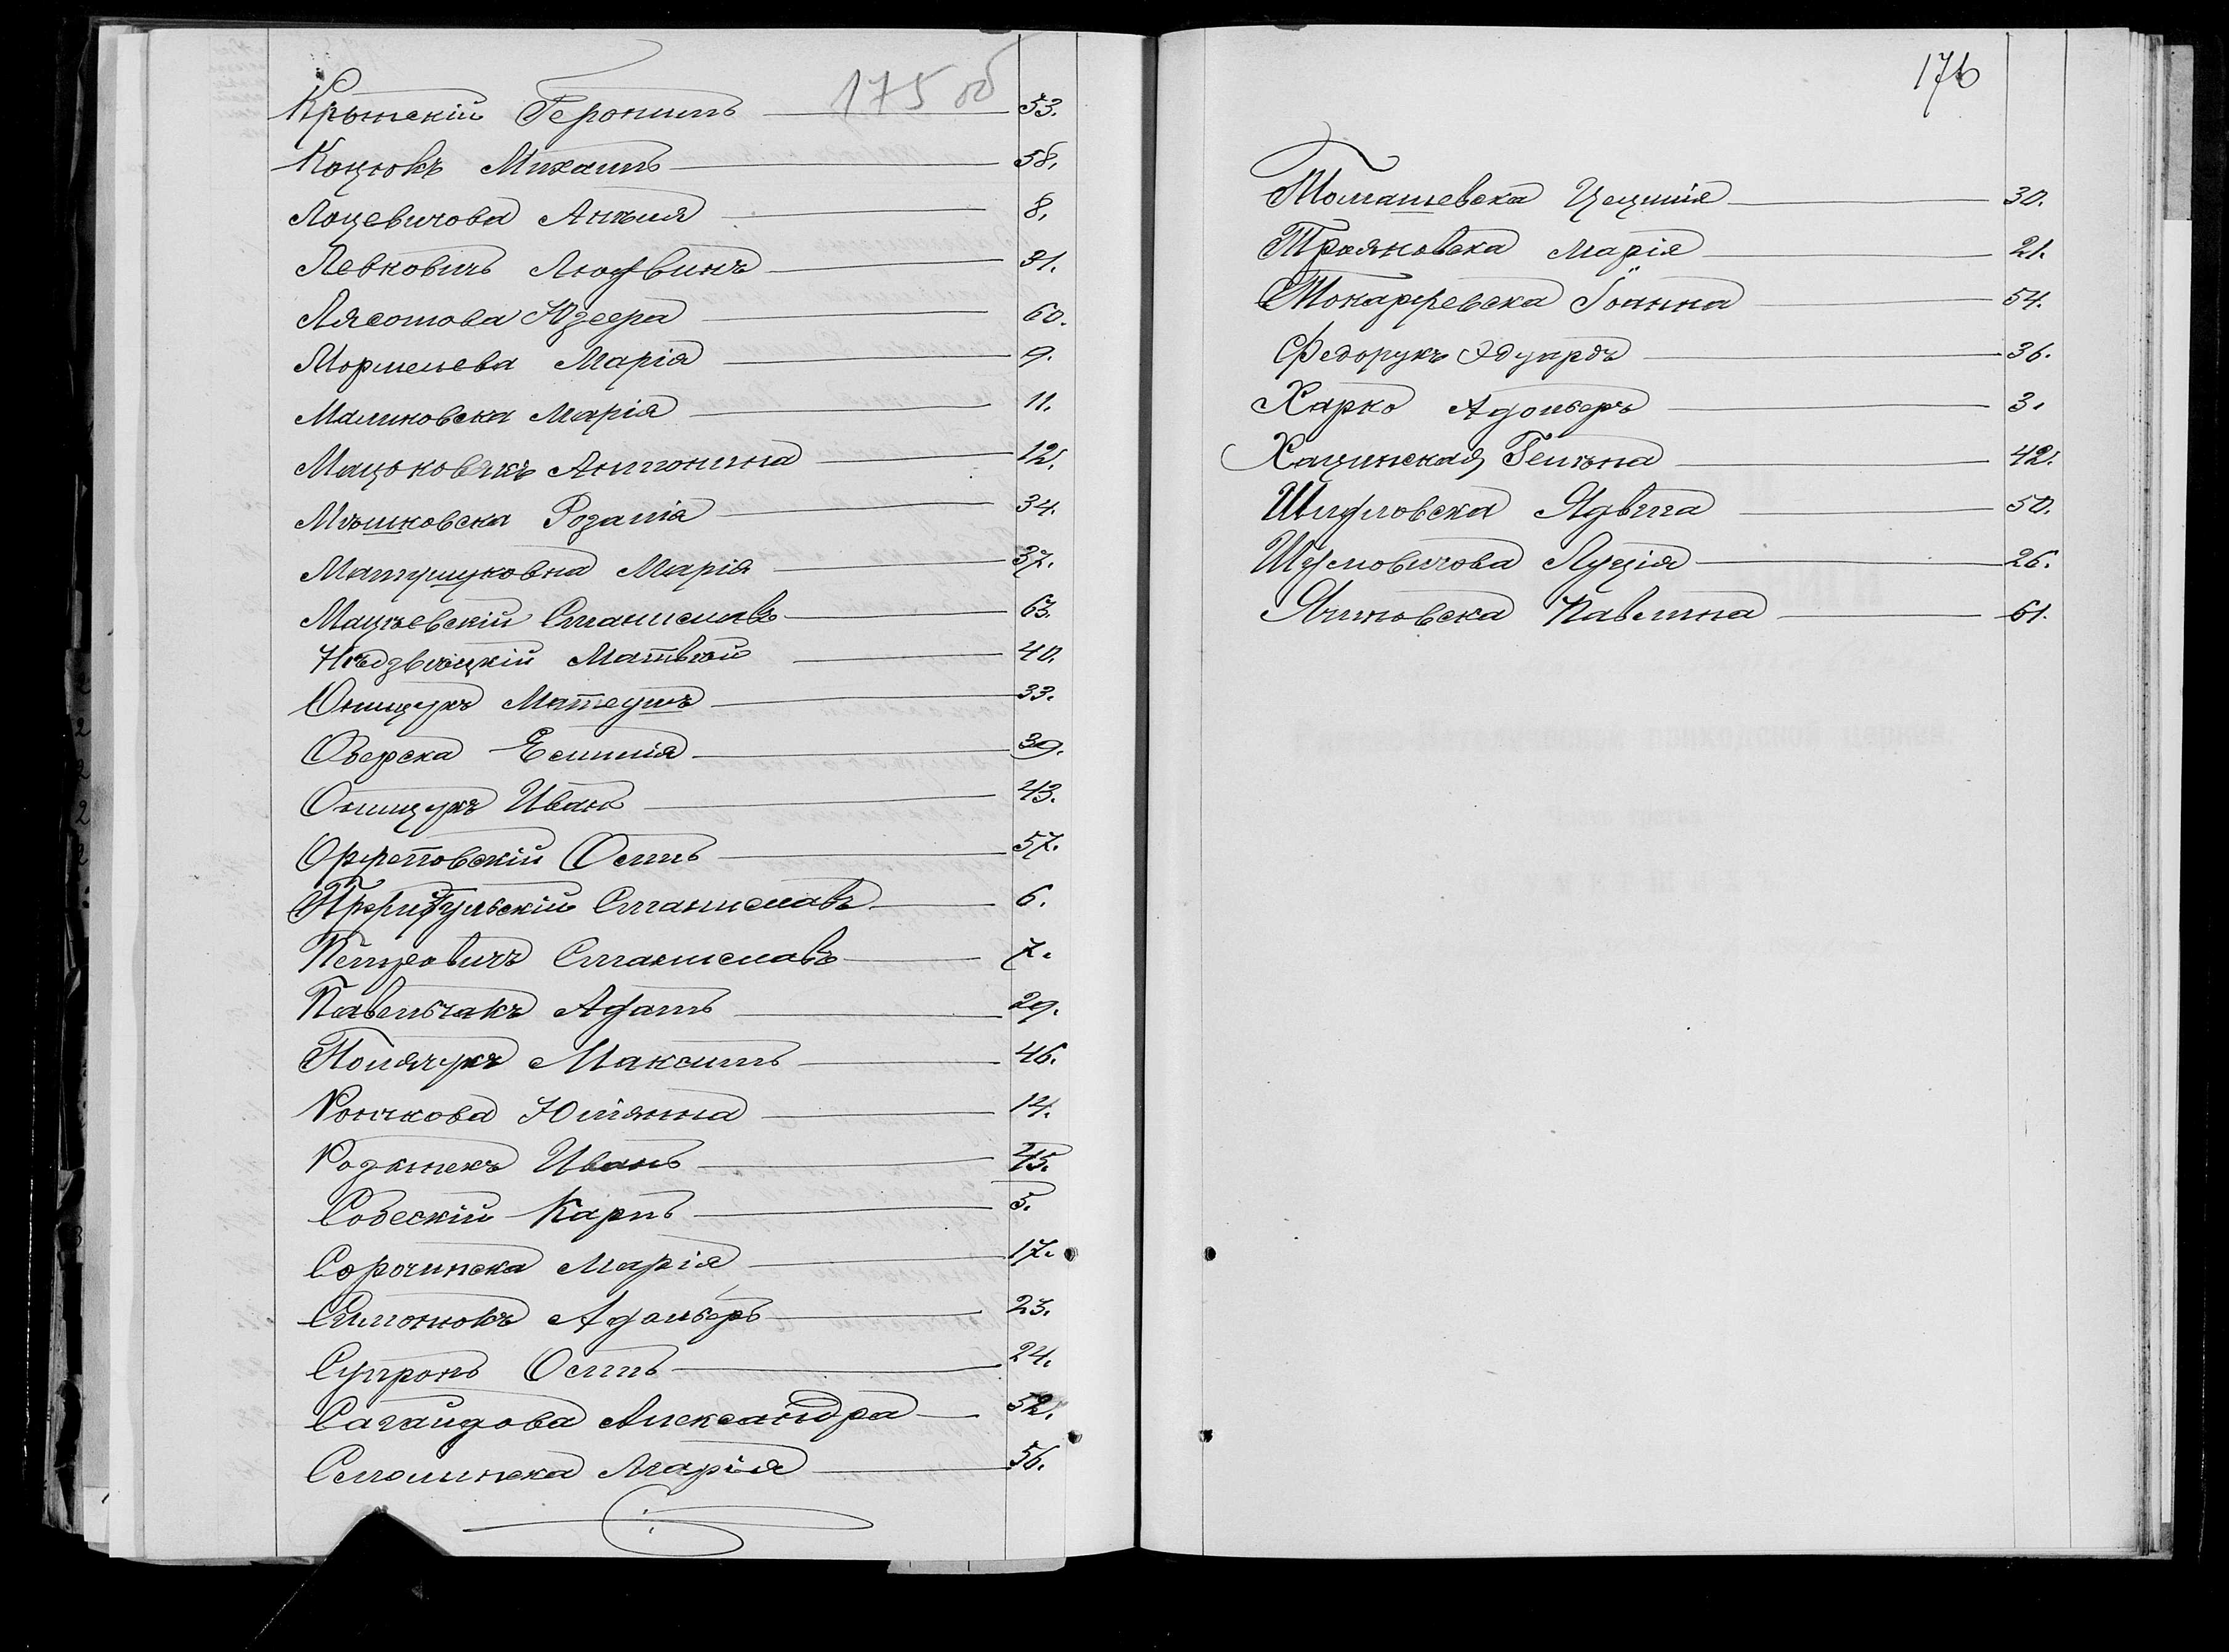 175 об
Крынскій Геронимъ 53.
Коцюкъ Михаилъ 58.
Лоцевичова Анѣля 8.
Левковичъ Людвикъ 31.
Лясотова Юзефа 60.
Моржелева Марія 9.
Малиновска Марія 11.
Мацьковякъ Антонина 12.
Мѣшковска Розалія 34.
Матущуковна Марія 37.
Мацѣевскій Станиславъ 63.
Нѣдзвѣцкій Матвѣй 40.
Онищукъ Матеушъ 33.
Озерска Емилія 39.
Онищукъ Иванъ 43.
Оржеповскій Осипъ 57.
Пржигульскій Станиславъ 6.
Петровичъ Станиславъ 7.
Павельчакъ Адамъ 29.
Полячукъ Максимъ 46.
Рончкова Юліянна 14.
Иванъ 45.
Собескій Карлъ 5.
Сорочинска Марія 17.
Симонюкъ Адольфъ 23.
Супронъ Осипъ 24.
Сагайдова Александра 52.
Смолинска Марія 56.
176
Томашевска Цецилія 30.
Трояновска Марія 21.
Токаржевска Іоанна 54.
Федорукъ Эдуардъ 36.
Харко Адольфъ 3.
Хацинская Гелена 42.
Шидловска Ядвига 50.
Шумовичова Луція 26.
Янновска Павлина 61.